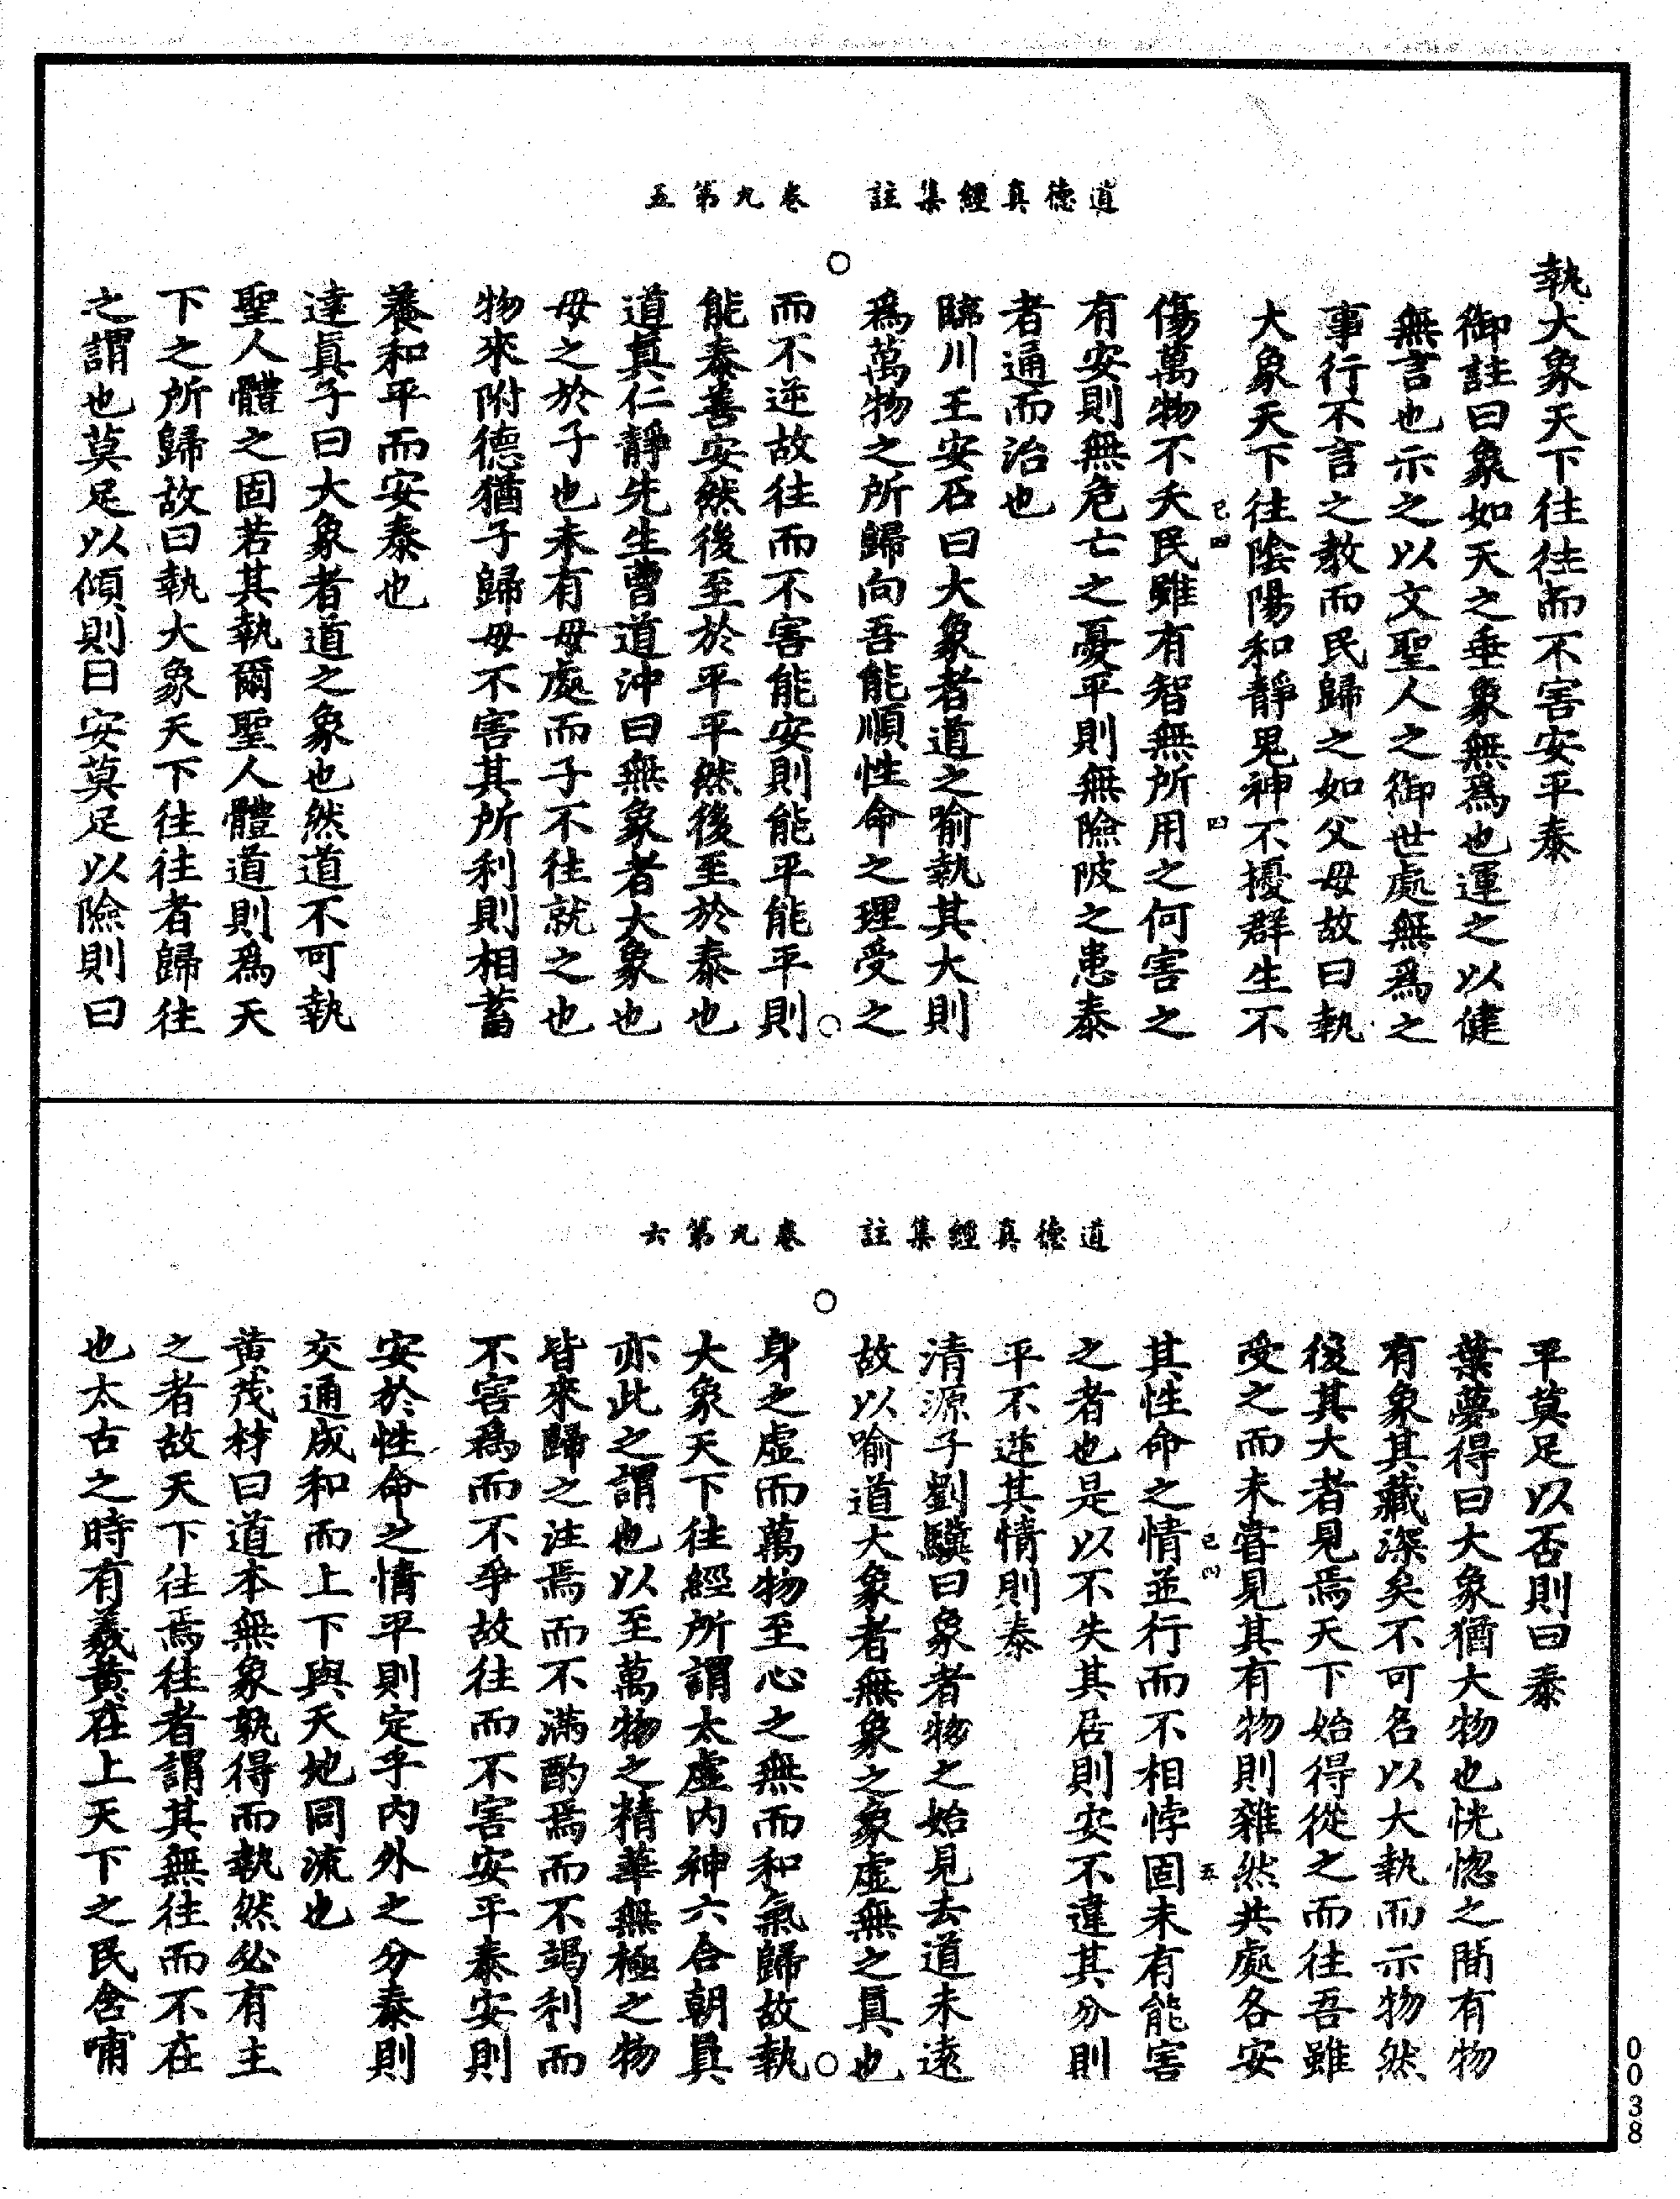 道德真經集註　卷九第五
執大象天下往往而不害安平泰
御註曰象如天之垂象無為也運之以健
無言也示之以文聖人之御世處無為之
事行不言之教而民歸之如父母故曰執
大象天下往陰陽和靜鬼神不擾群生不
傷萬物不夭民雖有智無所用之何害之
有安則無危亡之憂平則無險陂之患泰
者通而治也
臨川王安石曰大象者道之喻執其大則
為萬物之所歸向吾能順性命之理受之
而不逆故往而不害能安則能平能平則
能泰善安然後至於平平然後至於泰也
道真仁靜先生曹道沖曰無象者大象也
母之於子也未有母處而子不往就之也
物來附德猶子歸母不害其所利則相蓄
養和平而安泰也
達真子曰大象者道之象也然道不可執
聖人體之固若其執爾聖人體道則為天
下之所歸故曰執大象天下往往者歸往
之謂也莫足以傾則曰安莫足以險則曰
道德真經集註　卷九第六
平莫足以否則曰泰
葉夢得曰大象猶大物也恍惚之間有物
有象其藏深矣不可名以大執而示物然
後其大者見焉天下始得從之而往吾雖
受之而未嘗見其有物則雜然共處各安
其性命之情並行而不相悖固未有能害
之者也是以不失其居則安不違其分則
平不逆其情則泰
清源子劉驥曰象者物之始見去道未遠
故以喻道大象者無象之象虛無之真也
身之虛而萬物至心之無而和氣歸故執
大象天下往經所謂太虛內神六合朝真
亦此之謂也以至萬物之精華無極之物
皆來歸之注焉而不滿酌焉而不竭利而
不害為而不爭故往而不害安平泰安則
安於性命之情平則定乎內外之分泰則
交通成和而上下與天地同流也
黃茂材曰道本無象孰得而執然必有主
之者故天下往焉往者謂其無往而不在
也太古之時有羲黃在上天下之民含哺
0038